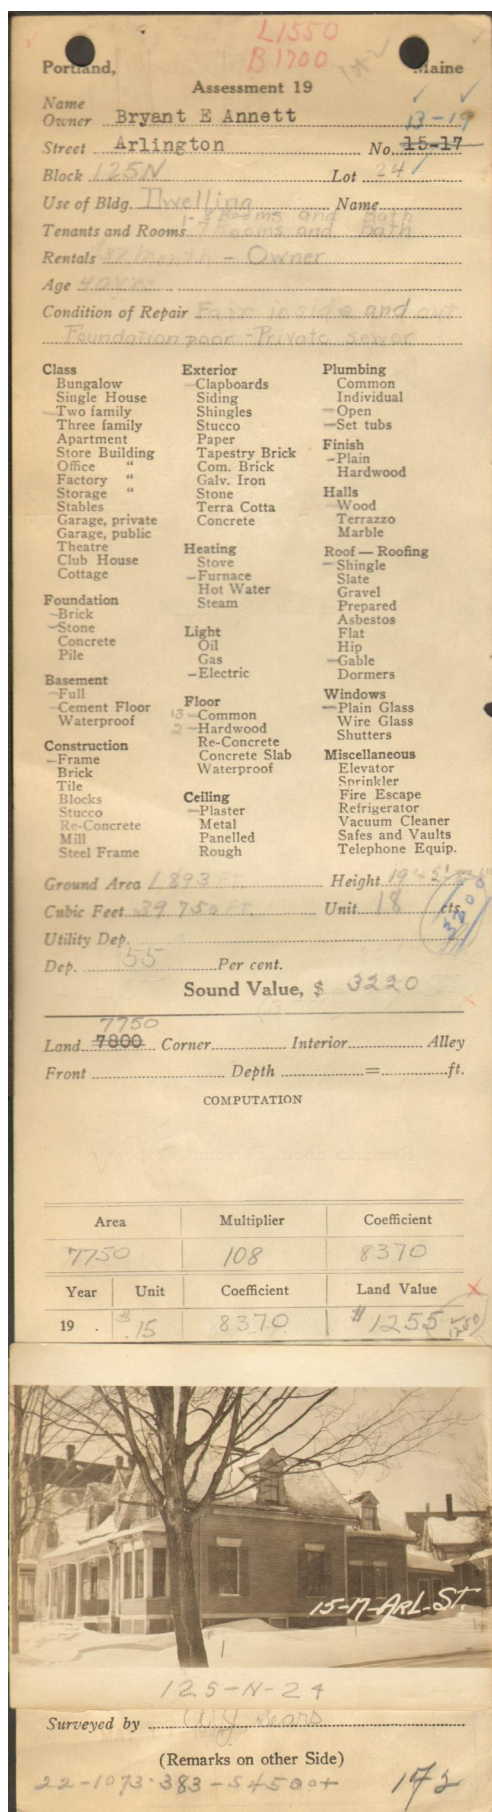 L1550
B1700
1 of 2
Portland, Maine
Assessment 19
Name
Owner Bryant E Annett 13-19
Street Arlington No. 15-17
Block 125N Lot 24
Use of Bldg. Dwelling Name
1-8 Rooms and Bath
Tenants and Rooms 7 Rooms and Bath
Rentals month - Owner
Age 40 yrs
Condition of Repair Fair inside and out
Foundation poor - Private sewer
Class
Bungalow
Single House
Two family
Three family
Apartment
Store Building
Office "
Factory "
Storage "
Stables
Garage, private
Garage, public
Theatre
Club House
Cottage
Foundation
Brick
Stone
Concrete
Pile
Basement
Full
Cement Floor
Waterproof
Construction
Frame
Brick
Tile
Blocks
Stucco
Re-Concrete
Mill
Steel Frame
Exterior
Clapboards
Siding
Shingles
Stucco
Paper
Tapestry Brick
Com. Brick
Galv. Iron
Stone
Terra Cotta
Concrete
Heating
Stove
Furnace
Hot Water
Steam
Light
Oil
Gas
Electric
Floor
13 Common
2 Hardwood
Re-Concrete
Concrete Slab
Waterproof
Ceiling
Plaster
Metal
Panelled
Rough
Plumbing
Common
Individual
Open
Set tubs
Finish
Plain
Hardwood
Halls
Wood
Terrazzo
Marble
Roof — Roofing
Shingle
Slate
Gravel
Prepared
Asbestos
Flat
Hip
Gable
Dormers
Windows
Plain Glass
Wire Glass
Shutters
Miscellaneous
Elevator
Sprinkler
Fire Escape
Refrigerator
Vacuum Cleaner
Safes and Vaults
Telephone Equip.
Ground Area 1893 Ft. Height
Cubic Feet 39750 FT. Unit 18 cts.
3200
Utility Dep.
Dep. 55 Per cent.
Sound Value, $ 3220
7750
Land 7800 Corner Interior Alley
Front Depth = ft.
COMPUTATION
Area Multiplier Coefficient
7750 108 8370
Year Unit Coefficient Land Value
19 . $ .15 8370 $1255 1250
15-17-ARL-ST.
125-N-24
Surveyed by Sears
(Remarks on other Side)
22-1073-383-S4500+ 172